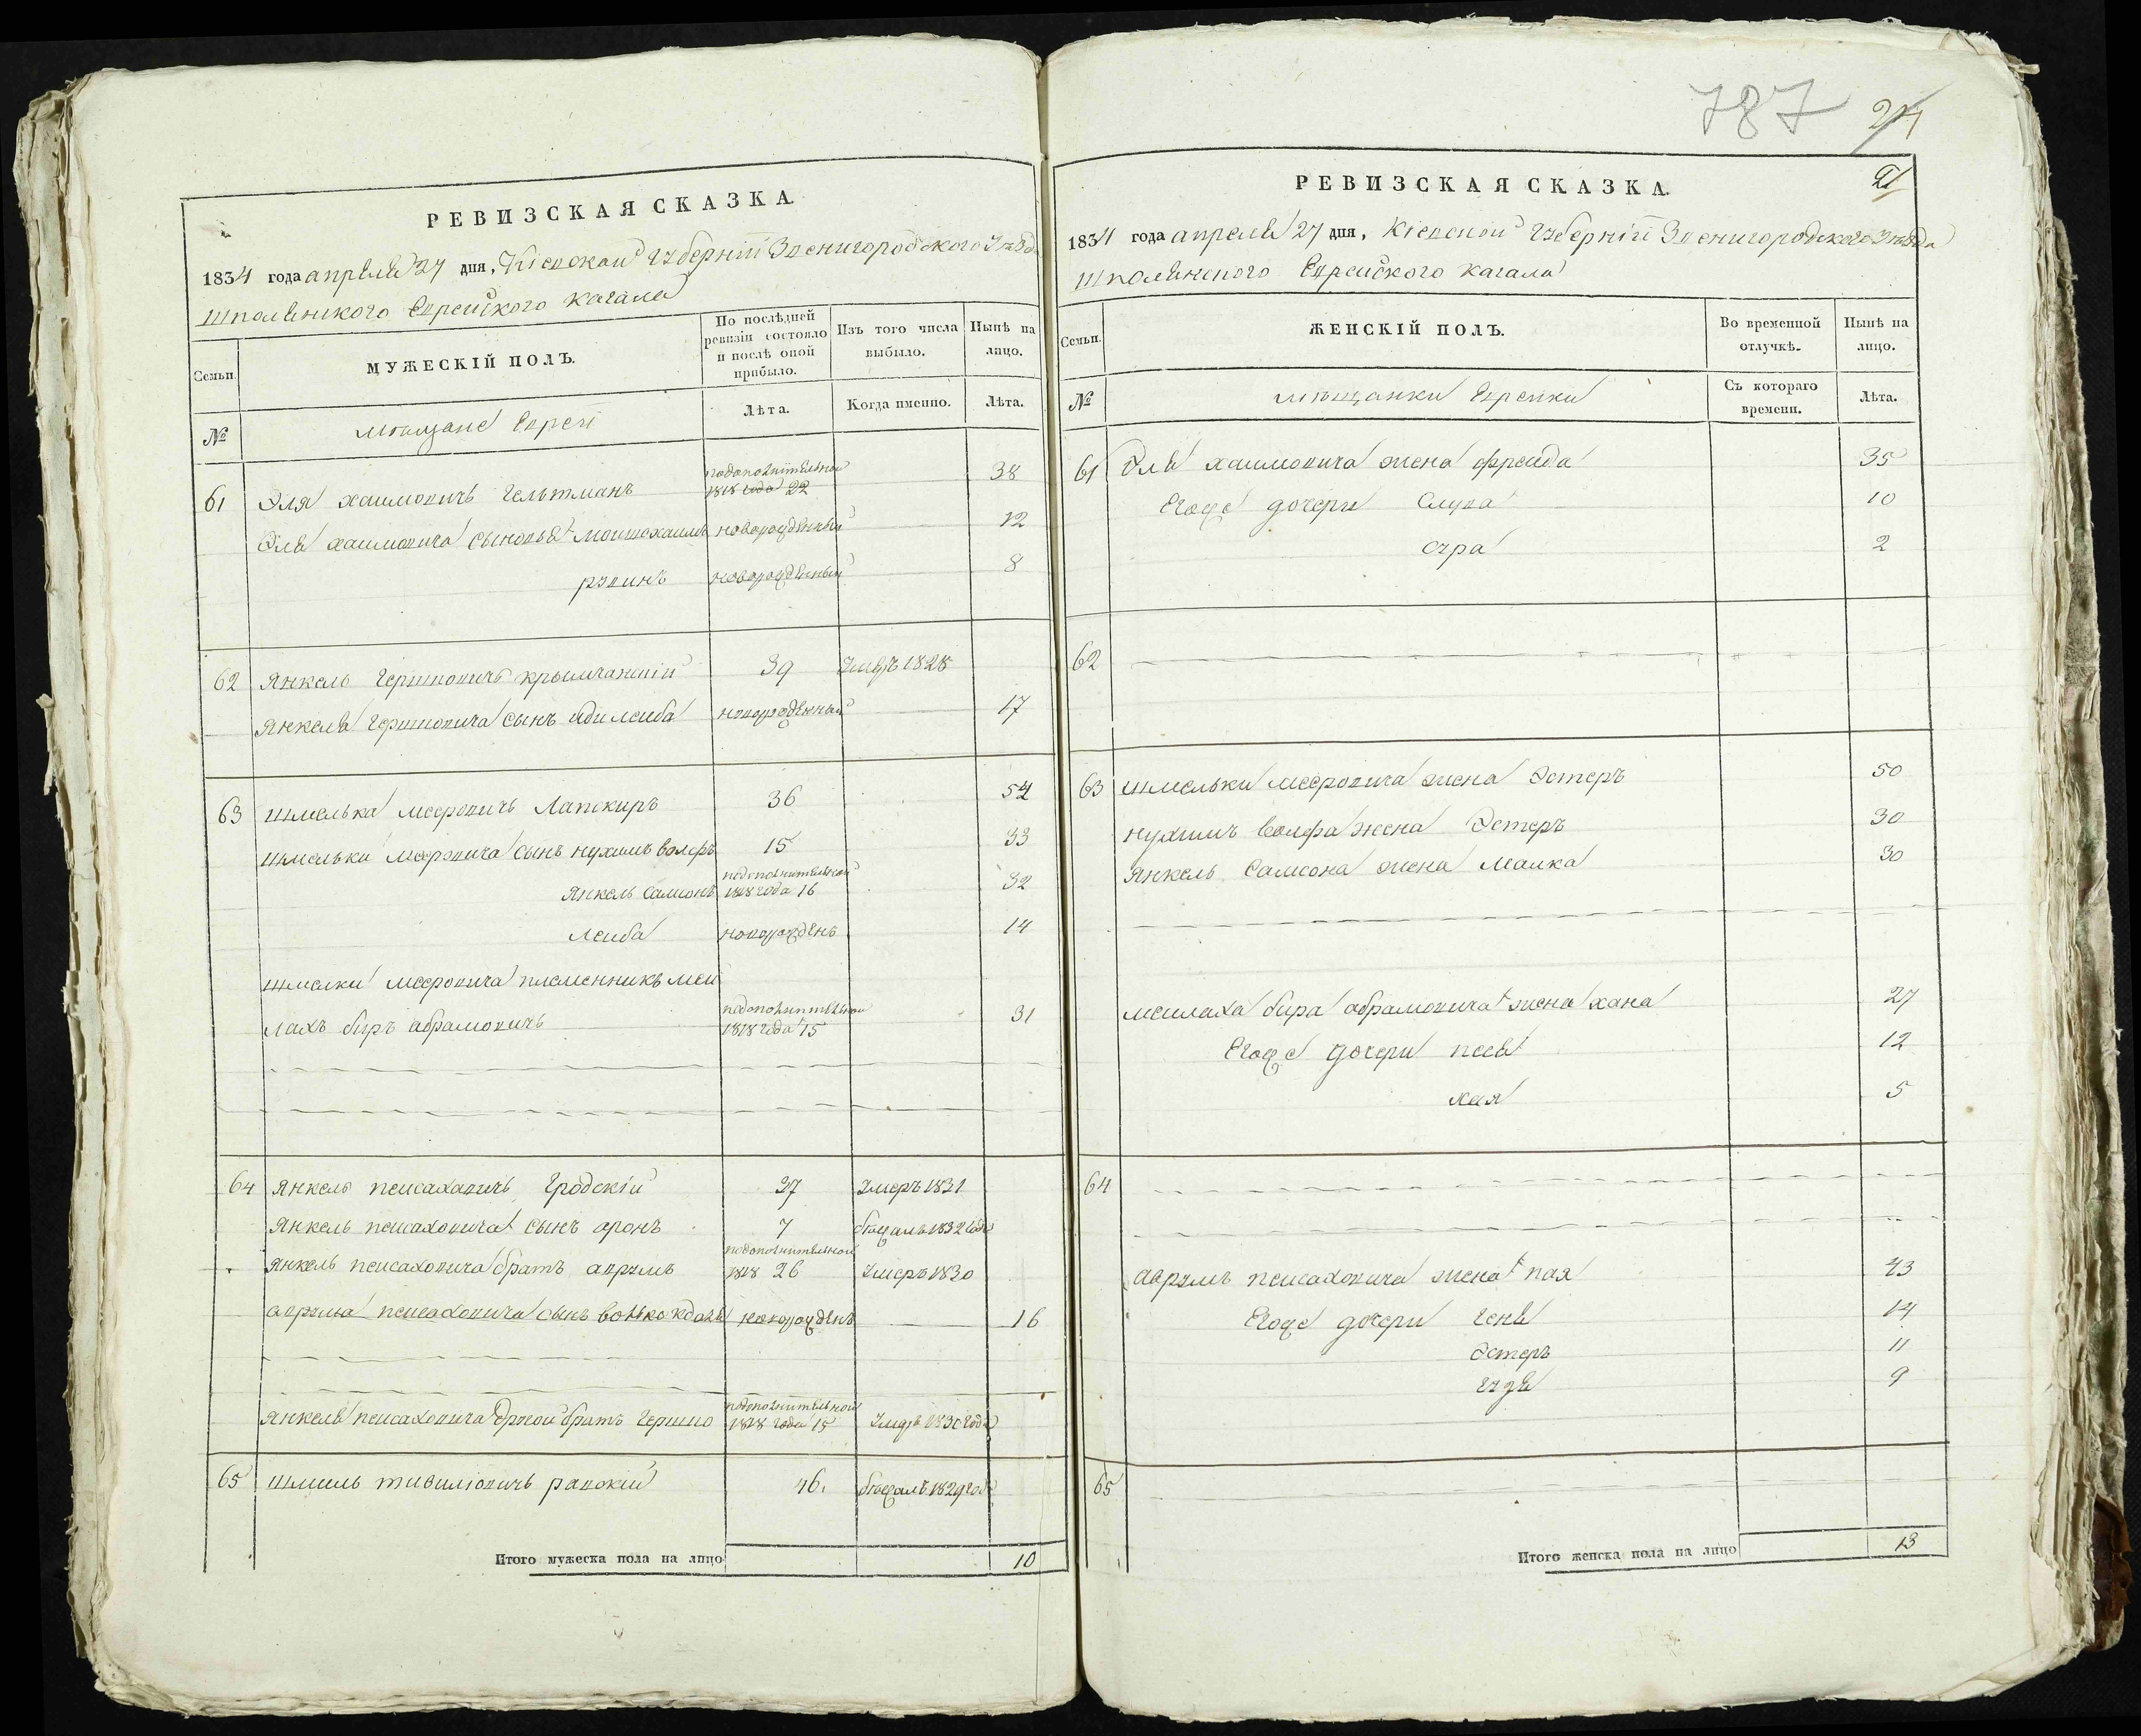 787 24
РЕВИЗСКАЯ СКАЗКА.
1834 года апреля 27 дня, Кіевской Губерніи Звенигородского Уезда
шполянского Еврейского Кагала
Семьи.
МУЖЕСКІЙ ПОЛЪ.
По послѣдней ревизіи состояло и послѣ оной прибыло.
Изъ того числа выбыло.
Нынѣ на лицо.
№
мѣщане Евреи
Лѣта.
Когда именно.
Лѣта.
61 Эля хаимовичъ Гельтманъ подополнительной 1818 года 22 38
Эля хаимовича сыновья мошкохаимъ новорожденный 12
рувинъ новорожденный 8
62 Янкель Гершковичъ крымчанскій 39 Умеръ 1828
Янкеля Гершковича сынъ идилейба новорожденный 17
63 шмелька мееровичъ Лапскиръ 36 54
шмельки мееровича сынъ нухимъ волфъ 15 33
Янкель Самсонъ подополнительной 1818 года 16 32
лейба новорожденъ 14
шмелки мееровича племенникъ меи
лахъ биръ абрамовичъ подополнительной 1818 года 15 31
64 Янкель пейсаховичъ Гродскій 27 Умеръ 1831
Янкель пейсаховича сынъ аронъ 7 бѣжалъ 1832 года
Янкель пейсаховича братъ аврумъ подополнительной 1818 26 Умеръ 1830
аврума пейсаховича сынъ новорожденъ 16
Янкеля пейсаховича другой братъ Гершко подополнительной 1818 года 15 Умеръ 1830 года
65 шмиль тивиліовичъ равскій 46. бѣжалъ 1829 года
Итого мужеска пола на лицо 10
РЕВИЗСКАЯ СКАЗКА. 21
1834 года апреля 27 дня, Кіевской Губерніи Звенигородского Уезда
шполянского Еврейского Кагала
Семьи.
ЖЕНСКІЙ ПОЛЪ.
Во временной отлучкѣ.
Нынѣ на лицо.
№
мѣщанки Еврейки
Съ котораго времени.
Лѣта.
61 Эля хаимовича жена фрейда 35
Егоже дочери Слува 10
сура 2
62
63 шмельки мееровича жена Эстеръ 50
нухимъ волфа жена Эстеръ 30
Янкель Самсона жена Малка 30
меилаха бира абрамовича жена хана 27
Егоже дочери песя 12
хая 5
64
аврумъ пейсаховича жена пая 43
Егоже дочери Геня 14
Эстеръ 11
9
65
Итого женска пола на лицо 13